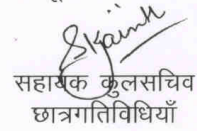 सहायक कुलसचिव
छात्रगतिविधियाँ